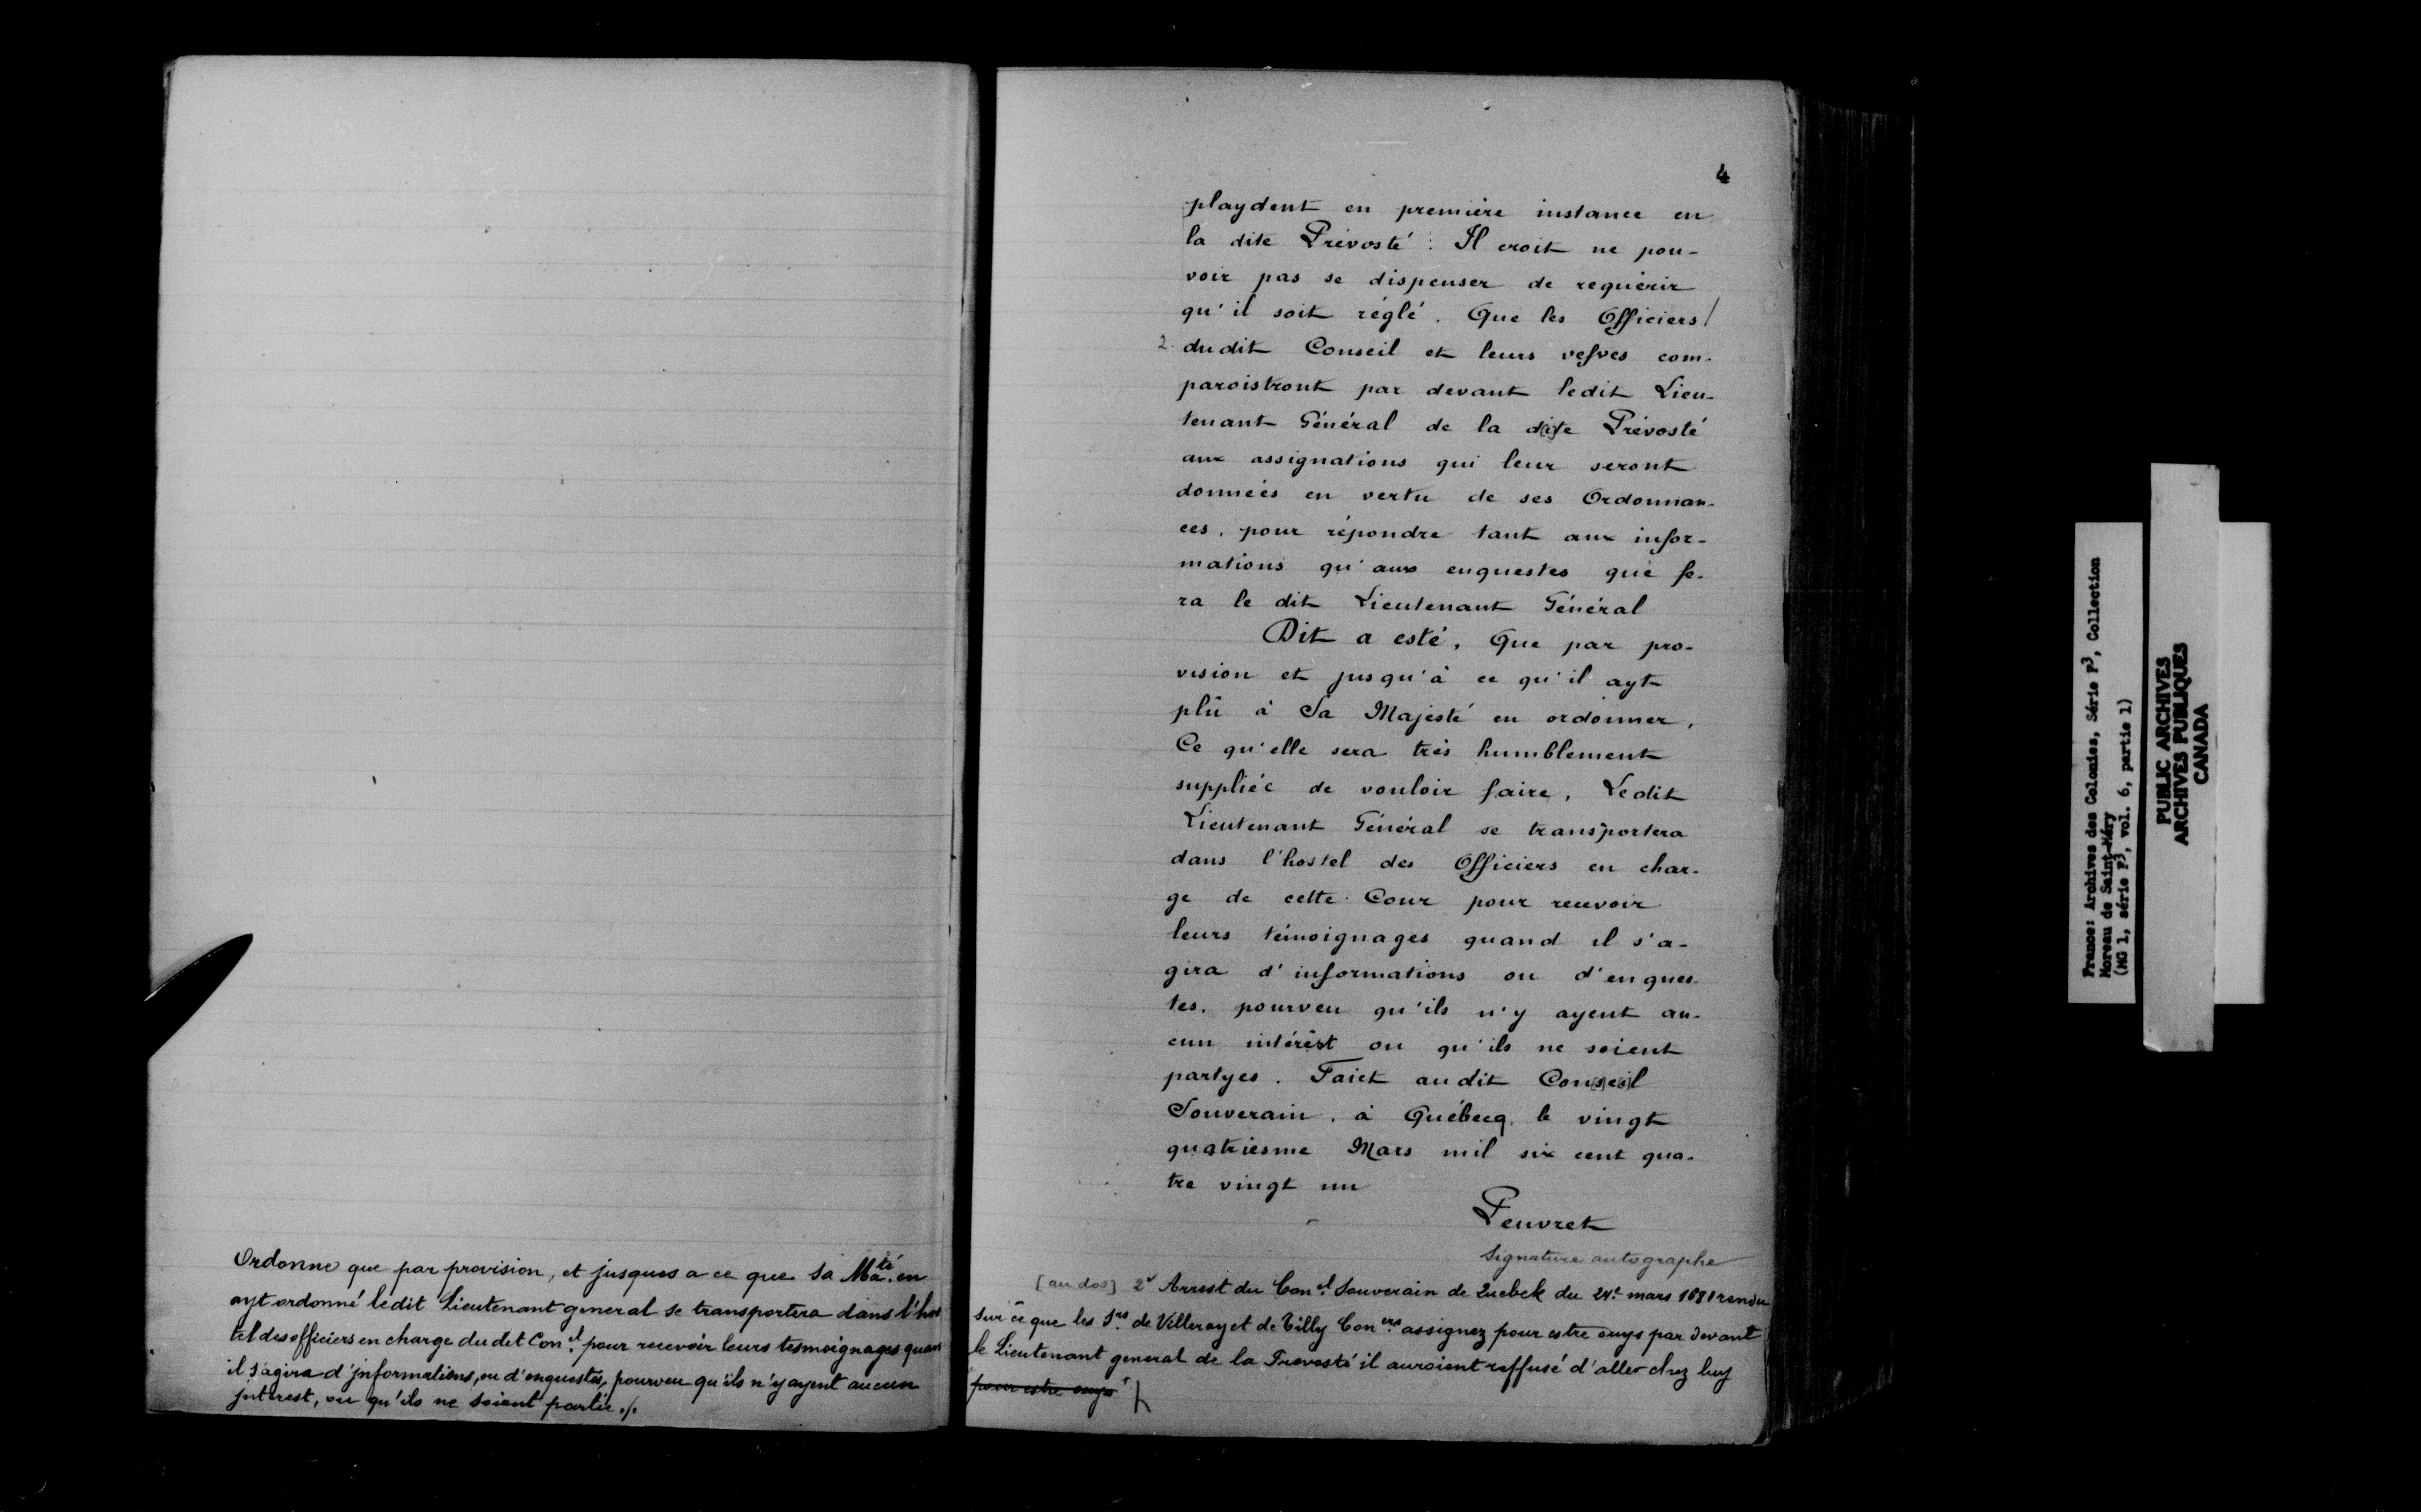 Ordonne que par provision, et jusques a ce que Sa Ma.té en
ayt ordonné ledit Lieutenant general se transportera dans l'hos
tel des officiers en charge du det Con.el pour recevoir leurs tesmoignages quan
il s'agira d'informations, ou d'enquestes, pourveu qu'ils n'y ayent aucun
jnterest, ou qu'ils ne soient partie ./.
4
playdent en première instance en
la dite Prévosté : Il croit ne pou-
voir pas se dispenser de requérir
qu'il soit réglé. Que les Officiers/
2. dudit Conseil et leurs vefves com-
paroistront par devant ledit Lieu-
tenant Général de la dite Prévosté
aux assignations qui leur seront
données en vertu de ses Ordonnan-
ces, pour répondre tant aux infor-
mations qu'aux enquestes que fe-
ra le dit Lieutenant Général
Dit a esté, Que par pro-
vision et jusqu'à ce qu'il ayt
plû à Sa Majesté en ordonner,
Ce qu'elle sera très humblement
suppliée de vouloir faire, Ledit
Lieutenant Général se transportera
dans l'hostel des Officiers en char-
ge de cette Cour pour recevoir
leurs témoignages quand il s'a-
gira d'informations ou d'enques-
tes, pourveu qu'ils n'y ayent au-
cun intérêst ou qu'ils ne soient
partyes. Faict audit Conseil
Souverain, à Québecq, le vingt
quatriesme Mars mil six cent qua-
tre vingt un
Peuvret
Signature autographe
[au dos] 2e Arrest du Con.el Souverain de Quebek du 24e mars 1681 rendu
sur ce que les Srs de Villeray et de Tilly Con.ers assignez pour estre ouys par devant
le Lieutenant general de la Prevosté il auroient reffusé d'aller chez luy
pour estre ouys
France: Archives des Colonies, Série F3, Collection
Moreau de Saint-Méry
(MG 1, série F3, vol. 6, partie 1)
PUBLIC ARCHIVES
ARCHIVES PUBLIQUES
CANADA